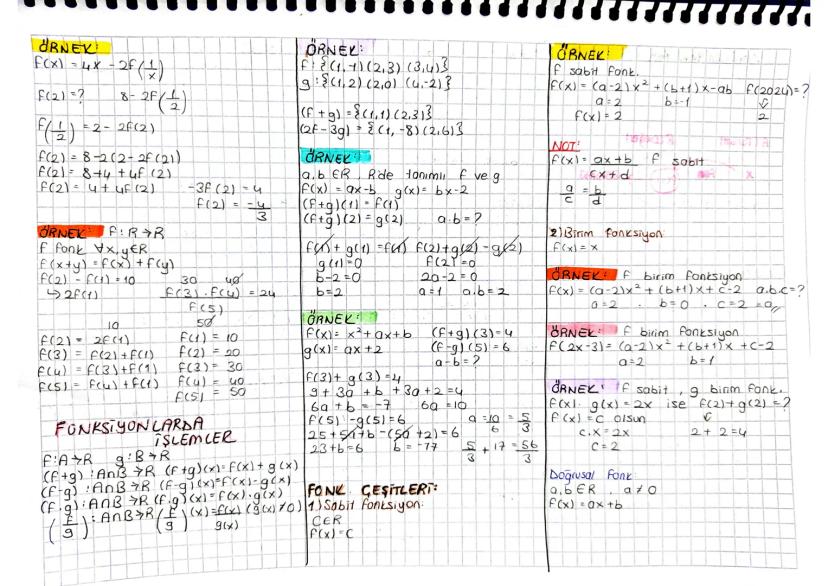 ÖRNEK:
f(x) = 4x - 2f(1/x)
f(2) = ? 8 - 2f(1/2)
f(1/2) = 2 - 2f(2)
f(2) = 8 - 2(2 - 2f(2))
f(2) = 8 + 4 + 4f(2)
f(2) = 4 + 4f(2) -3f(2) = 4
f(2) = -4/3
ÖRNEK: f: R→R
f fonk ∀x,y∈R
f(x+y) = f(x) + f(y)
f(2) - f(1) = 10 30 40
↳ 2f(1) f(3) . f(4) / f(5) = 24
50
10
f(2) = 2f(1) f(1) = 10
f(3) = f(2) + f(1) f(2) = 20
f(4) = f(3) + f(1) f(3) = 30
f(5) = f(4) + f(1) f(4) = 40
f(5) = 50
FONKSİYONLARDA
İŞLEMLER
f: A→R g: B→R
(f+g) : A∩B→R (f+g)(x) = f(x) + g(x)
(f-g) : A∩B→R (f-g)(x) = f(x) - g(x)
(f.g) : A∩B→R (f.g)(x) = f(x) . g(x)
(f/g) : A∩B→R (f/g)(x) = f(x)/g(x) (g(x)≠0)
ÖRNEK:
f: {(1,-1) (2,3) (3,4)}
g: {(1,2) (2,0) (4,-2)}
(f+g) = {(1,1) (2,3)}
(2f-3g) = {(1,-8) (2,6)}
ÖRNEK:
a,b ∈R, R'de tanımlı f ve g
f(x) = ax-b g(x) = bx-2
(f+g)(1) = f(1)
(f+g)(2) = g(2) a.b = ?
f(1) + g(1) = f(1) f(2) + g(2) - g(2)
g(1) = 0 f(2) = 0
b-2=0 2a-2=0
b=2 a=1 a.b=2
ÖRNEK:
f(x) = x² + ax + b (f+g)(3) = 4
g(x) = ax+2 (f-g)(5) = 6
a-b = ?
f(3) + g(3) = 4
9 + 3a + b + 3a + 2 = 4
6a + b = -7 6a = 10
f(5) - g(5) = 6 a = 10/6 = 5/3
25 + 5a + b - (5a + 2) = 6
23 + b = 6 b = -17 5/3 + 17 = 56/3
FONK ÇEŞİTLERİ:
1) Sabit fonksiyon:
C∈R
f(x) = C
ÖRNEK:
f sabit fonk.
f(x) = (a-2)x² + (b+1)x - ab f(2024) = ?
a=2 b=-1 ⇓
f(x) = 2 2
NOT:
f(x) = ax+b / cx+d f sabit
a/c = b/d
2) Birim fonksiyon
f(x) = x
ÖRNEK: f birim fonksiyon
f(x) = (a-2)x² + (b+1)x + c-2 a.b.c = ?
a=2 . b=0 . c=2 = 0//
ÖRNEK: f birim fonksiyon
f(2x-3) = (a-2)x² + (b+1)x + c-2
a=2 b=1
ÖRNEK: f sabit, g birim fonk.
f(x) . g(x) = 2x ise f(2) + g(2) = ?
f(x) = c olsun ⇓
c.x = 2x 2+2=4
c=2
Doğrusal Fonk:
a,b∈R , a≠0
f(x) = ax+b